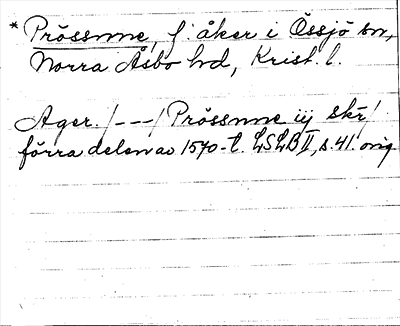 * Prössmne, f. åker i Össjö sn,
Norra Åsbo hd, Krist. l.
Ager. /---/ Prössmne iij skr/
förra delen av 1570-t. LSLB II, s. 41. orig.